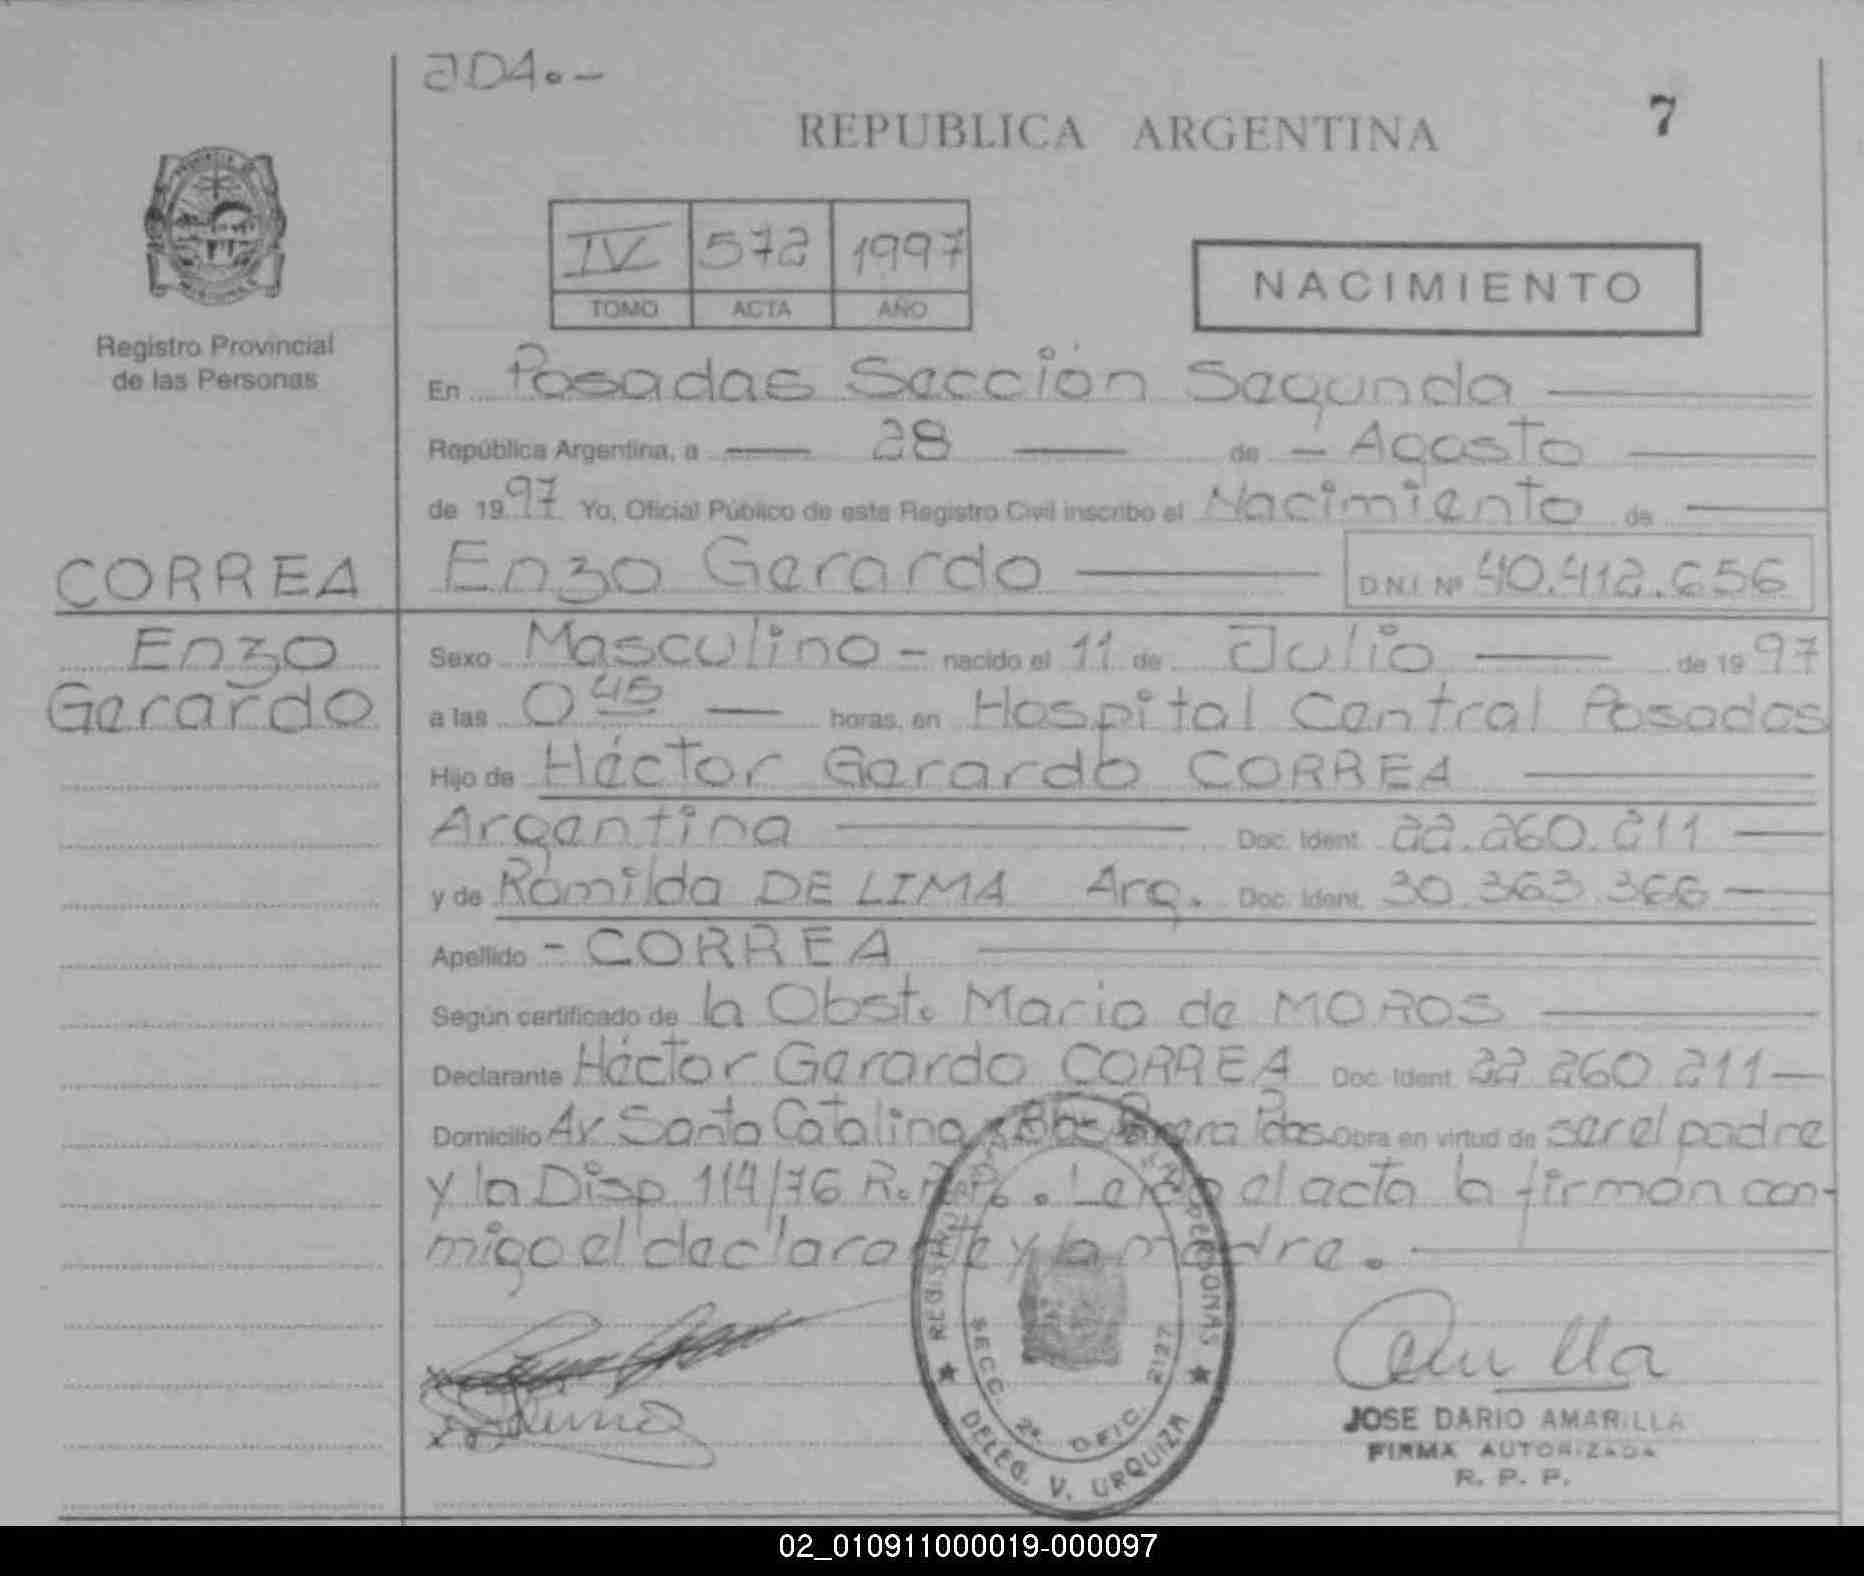 JDA.-
7
REPUBLICA ARGENTINA
IV 572 1997
TOMO ACTA AÑO
NACIMIENTO
Registro Provincial
de las Personas
En Posadas Sección Segunda
República Argentina, a 28 de Agosto
de 1997 Yo, Oficial Público de este Registro Civil inscribo el Nacimiento de
CORREA
Enzo Gerardo D.N.I. Nº 40.412.656
Enzo
Gerardo
Sexo Masculino - nacido el 11 de Julio de 1997
a las 0 45 horas, en Hospital Central Posadas
Hijo de Héctor Gerardo CORREA
Argentina Doc. Ident. 22.260.211
y de Romilda DE LIMA Arg. Doc. Ident. 30.363.366
Apellido - CORREA
Según certificado de la Obst. Maria de MOROS
Declarante Héctor Gerardo CORREA Doc. Ident. 22.260.211
Domicilio Av Santa Catalina Pdas. Obra en virtud de ser el padre
y la Disp. 114/76 R.P.P.. Leida el acta la firman con-
migo el declarante y la madre.
REGISTRO DE LAS PERSONAS
SECC. 2ª OFIC. 2127
DELEG. V. URQUIZA
JOSE DARIO AMARILLA
FIRMA AUTORIZADA
R. P. P.
02_010911000019-000097